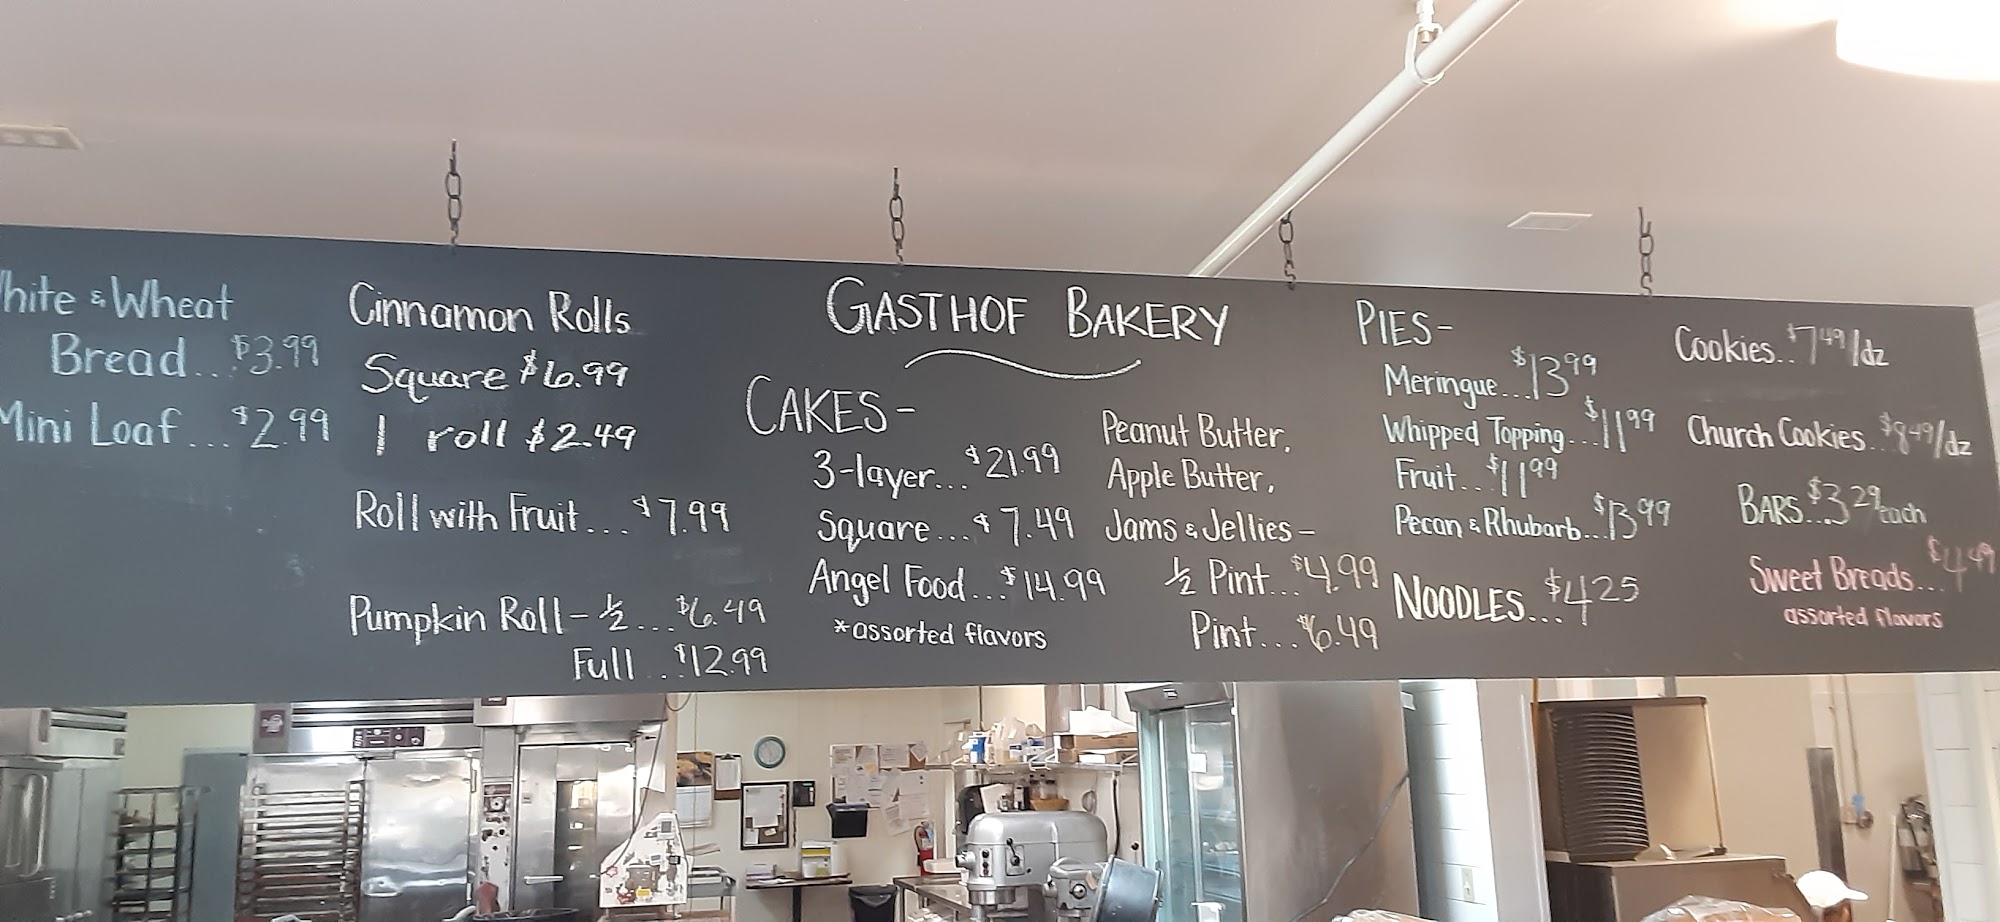 hite & Wheat
Bread...$3.99
Mini Loaf...$2.99
Cinnamon Rolls
Square $6.99
1 roll $2.49
Roll with Fruit...$7.99
Pumpkin Roll - ½...$6.49
Full...$12.99
GASTHOF BAKERY
CAKES -
3-layer...$21.99
Square...$7.49
Angel Food...$14.99
*assorted flavors
Peanut Butter,
Apple Butter,
Jams & Jellies -
½ Pint...$4.99
Pint...$6.49
PIES -
Meringue...$13.99
Whipped Topping...$11.99
Fruit...$11.99
Pecan & Rhubarb...$13.99
NOODLES...$4.25
Cookies..$7.49/dz
Church Cookies..$8.49/dz
BARS...$3.29 each
Sweet Breads...$4.49
assorted flavors